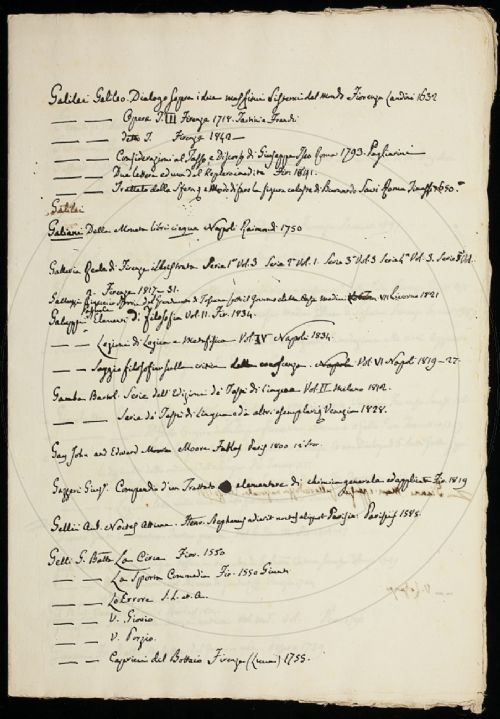 Galilei Galileo. Dialogo sopra i due massimi Sistemi del mondo Fiorenza Landini 1632
— — Opere T. III Firenze 1718. Tartini e Franchi
— — dette T. Firenze 1842 —
— — Considerazioni al Tasso e Discorso di Giuseppe Iseo Roma 1793. Pagliarini
— — Due lettere Fir. 1841.
— — Trattato della Sfera e Modo di fare la figura celeste di Buonardo Savi Roma 1650.
Galilei
Galiani Della Moneta libri cinque Napoli Raimondi 1750
Galleria Reale di Firenze illustrata Serie 1ª Vol. 3 Serie 2ª Vol. 1. Serie 3ª Vol. 3 Serie 4ª Vol. 3. Serie 5ª Vol.
2. Firenze 1817-31.
Galluzzi Storia del Granducato di Toscana sotto il Governo della Casa Medici VII Livorno 1821
Galuppi Pasquale Elementi di Filosofia Vol. II. Fir. 1834.
— — Lezioni di Logica e Metafisica Vol. IV Napoli 1834.
— — Saggio filosofico sulla critica della conoscenza. Napoli Vol. VI Napoli 1819-27.
Gamba Bartol. Serie dell'Edizioni de' Testi di Lingua Vol. II Milano 1812.
— — Serie de' Testi di Lingua e di altri esemplari Venezia 1828.
Gay John and Edward Moore Fables Paris 1800
Gazzeri Giuse. Compendio d'un Trattato elementare di chimica generale ed applicata Fir. 1819
Gellii Aul. Noctes Atticae. Henr. Stephanus Parisiis 1585.
Gelli G. Batta La Circe Fior. 1550
— — La Sporta Commedia Fir. 1550 Giunti
— — Lo Errore S. L. et A.
— — V. Giovio
— — V. Porzio.
— — Capricci del Bottaio Firenze (Lucca) 1755.